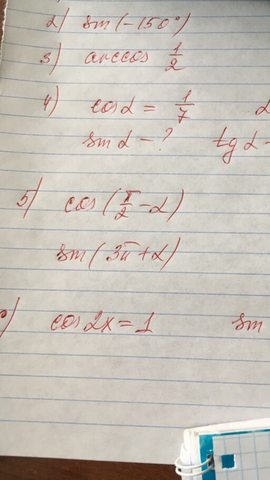 2) sin(-150°)
3) arccos 1/2
4) cosα = 1/7 α
sinα - ? tgα -
5) cos(π/2 - α)
sin(3π + α)
) cos2x = 1 sin